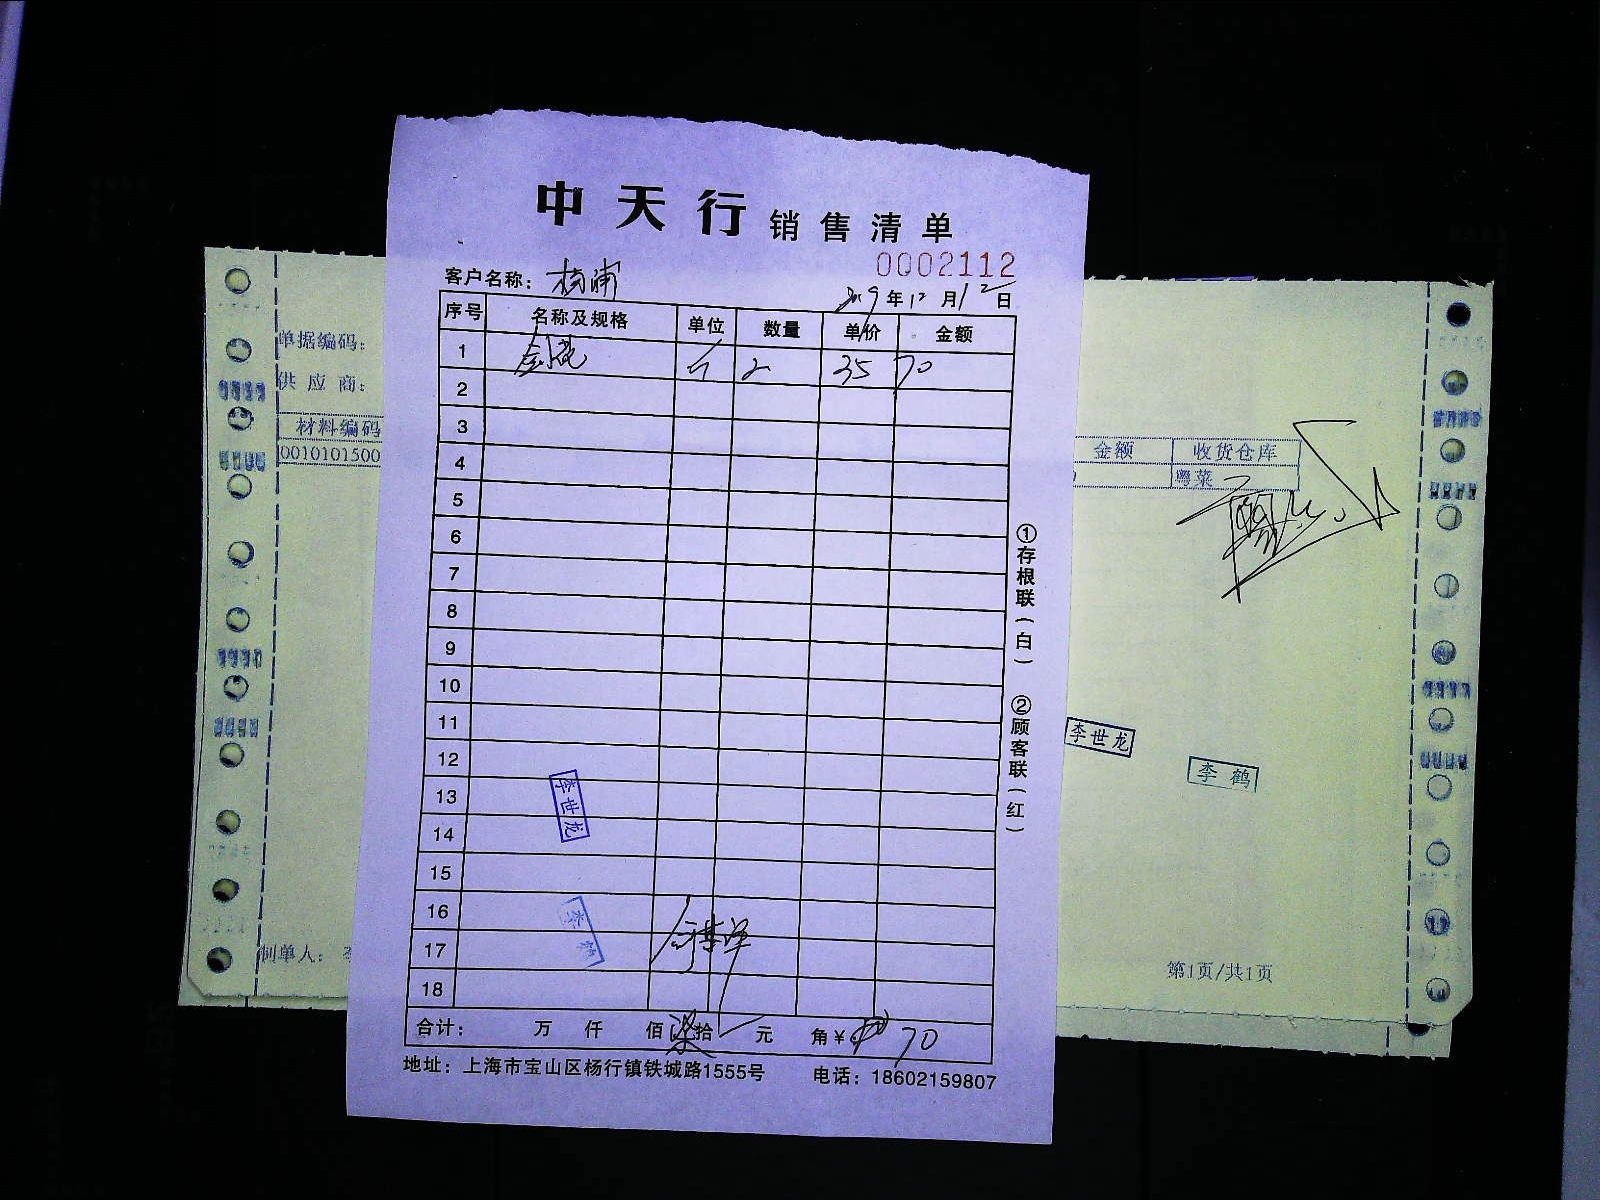 中天行 销售清单
0002112
客户名称：杨浦
2019年12月12日
序号 名称及规格 单位 数量 单价 金额
1 个 2 35 70
2
3
4
5
6
7
8
9
10
11
12
13
14
15
16
17
18
李世龙
李鹤
合计： 万 仟 佰 柒拾 元 角 ¥ 70
地址：上海市宝山区杨行镇铁城路1555号 电话：18602159807
①存根联（白）
②顾客联（红）
单据编码：
供应商：
材料编码
0010101500
制单人：
金额 收货仓库
粤菜
李世龙
李鹤
第1页/共1页